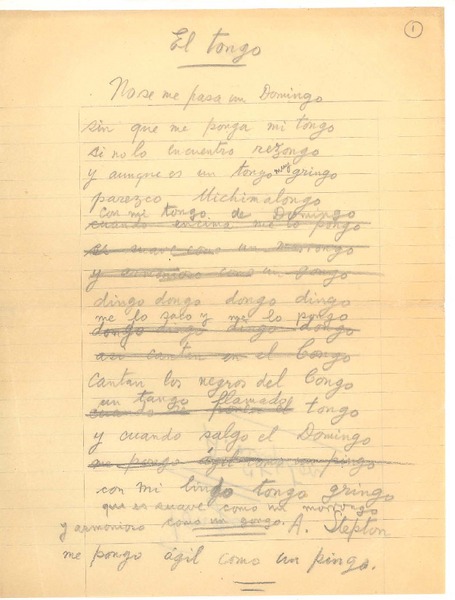 1
El tongo
No se me pasa un Domingo
sin que me ponga mi tongo
si no lo encuentro rezongo
y aunque es un tongo muy gringo
parezco Michimalongo
con mi tongo de Domingo
cuando encima me lo pongo
es suave como un morrongo
y armonioso como un gongo
dingo dongo dongo dingo
me lo saco y me lo pongo
dongo dingo dingo dongo
asi cantan en el Congo
Cantan los negros del Congo
un tango llamado tongo
cuando se ponen el
y cuando salgo el Domingo
me pongo ágil como un pingo
con mi lindo tongo gringo
que es suave como un morrongo
y armonioso como un gongo. A. Stepton
me pongo ágil como un pingo.